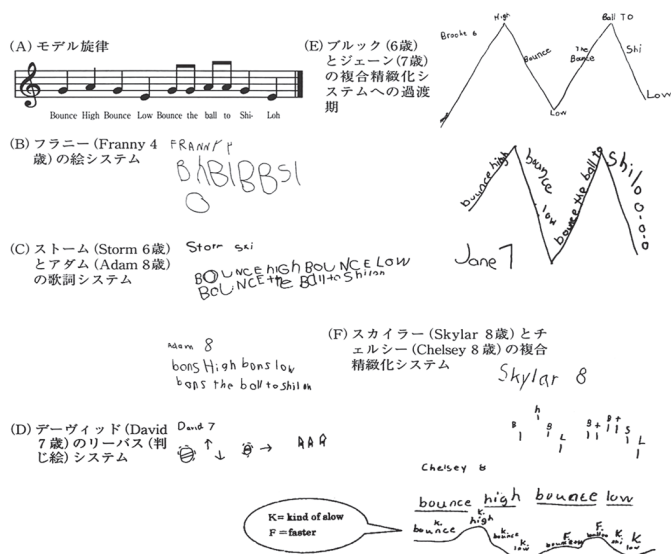 (A) モデル旋律
Bounce High Bounce Low Bounce the ball to Shi- Loh
(B) フラニー (Franny 4
歳) の絵システム
FRANNY 4
B hBlBBSl
(C) ストーム (Storm 6歳)
とアダム (Adam 8歳)
の歌詞システム
Storm
BOUNCE hIGH BOUNCE LOW
BOUNCE the Ball to Shiloh
Adam 8
bons High bons low
bans the ball to shiloh
(D) デーヴィッド (David
7歳) のリーバス (判
じ絵) システム
David 7
(E) ブルック (6歳)
とジェーン (7歳)
の複合精緻化シ
ステムへの過渡
期
Brooke 6
High
Bounce
Low
The
Bounce
Ball TO
Shi
Low
bounce high
bounce
low
bounce the ball to
Shilo o-o-o
Jane 7
(F) スカイラー (Skylar 8歳) とチ
ェルシー (Chelsey 8歳) の複合
精緻化システム
Skylar 8
h
B B B t B t S
L L
Chelsey 8
bounce high bounce low
K. K. K. K. F. F. K. K
bounce high bounce low shi low
K= kind of slow
F = faster